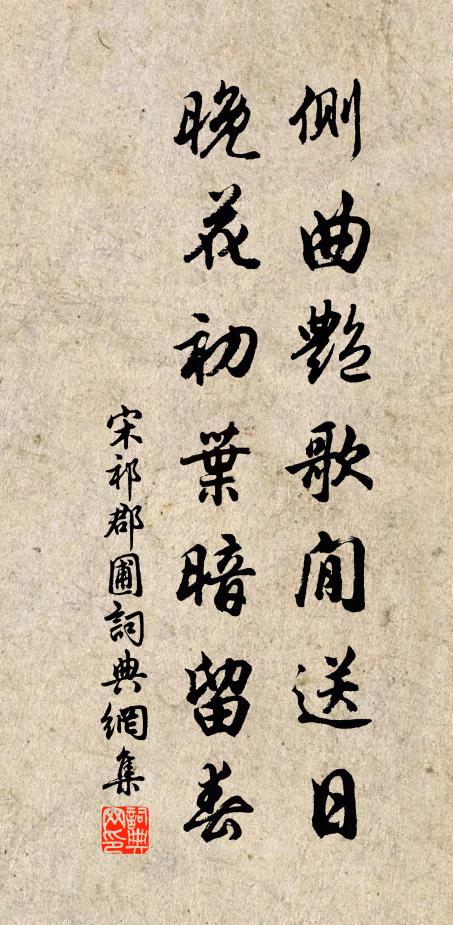 側曲艷歌閒送日
晚花初葉暗留春
宋祁郡圃詞典網集
詞典网印